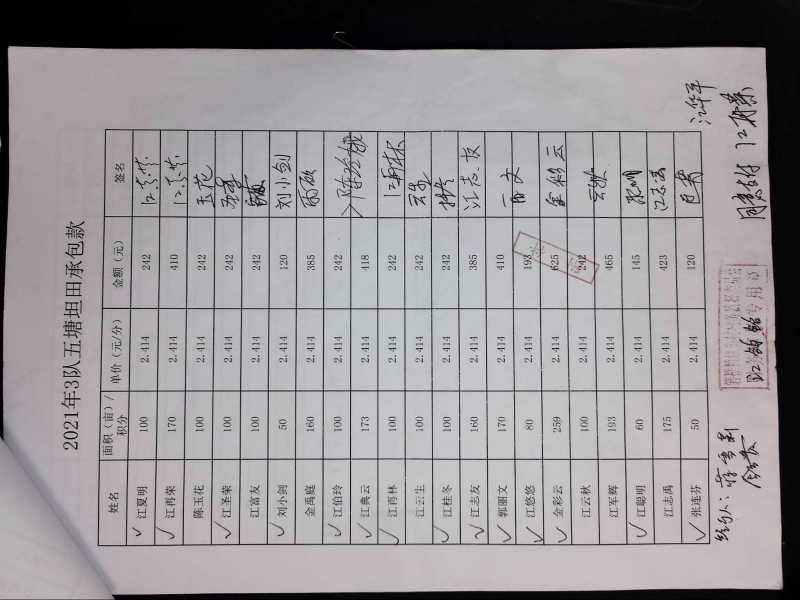 2021年3队五塘坦田承包款
姓名 面积（亩）/积分 单价（元/分） 金额（元） 签名
江夏明 100 2.414 242
江再荣 170 2.414 410
陈玉花 100 2.414 242 玉花
江圣荣 100 2.414 242
江富友 100 2.414 242
刘小剑 50 2.414 120 刘小剑
金禹庭 160 2.414 385
江伯玲 100 2.414 242
江典云 173 2.414 418
江再林 100 2.414 242 江再林
江云生 100 2.414 242 云生
江桂冬 100 2.414 242
江志友 160 2.414 385 江志友
郭丽文 170 2.414 410 丽文
江悠悠 80 2.414 193
金彩云 259 2.414 625 金彩云
江云秋 100 2.414 242 云秋
江军辉 193 2.414 465
江聪明 60 2.414 145 聪明
江志禹 175 2.414 423 江志禹
张连芬 50 2.414 120
江华平
同意支付 江再荣
专用章
经办人：